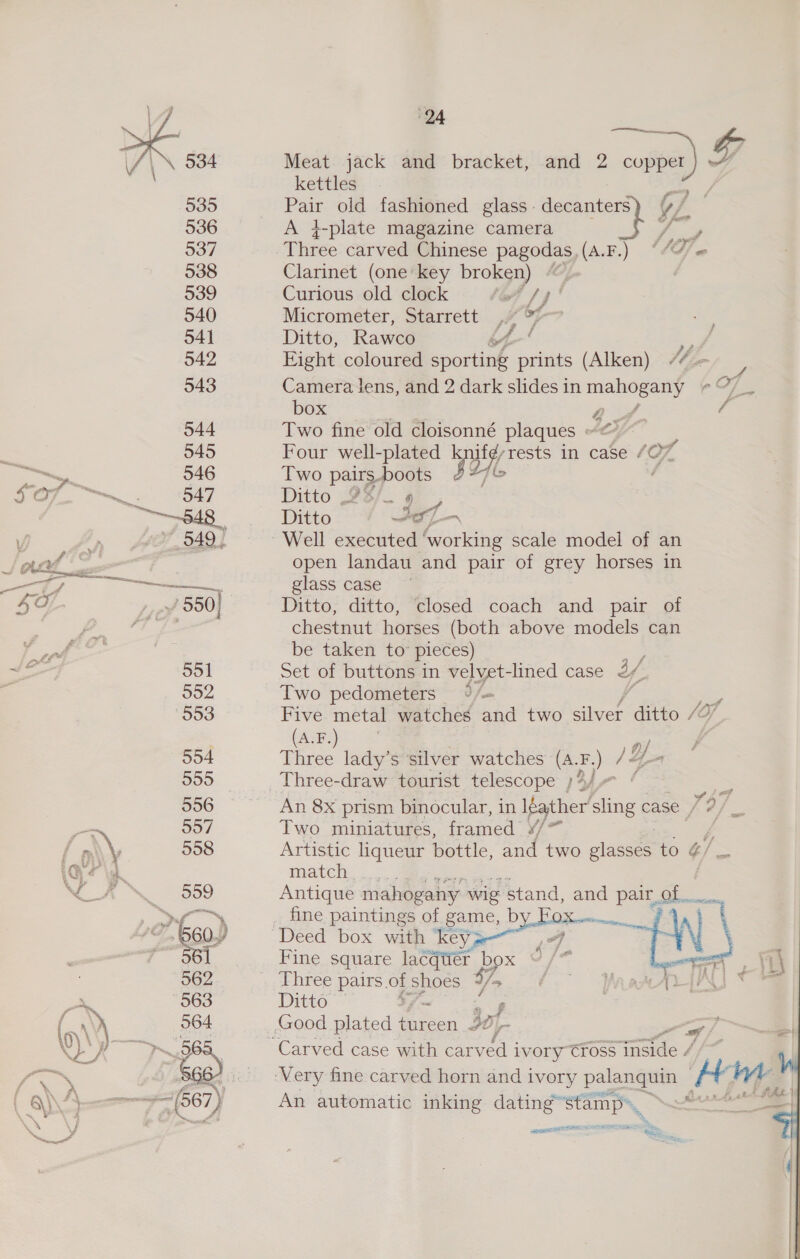 24
534 Meat jack and bracket, and 2 copper
kettles
535 Pair old fashioned glass decanters
536 A ¼-plate magazine camera
537 Three carved Chinese pagodas (A.F.)
538 Clarinet (one key broken)
539 Curious old clock
540 Micrometer, Starrett
541 Ditto, Rawco
542 Eight coloured sporting prints (Alken)
543 Camera lens, and 2 dark slides in mahogany
box
544 Two fine old cloisonné plaques
545 Four well-plated knife rests in case
546 Two pairs boots
547 Ditto
548 Ditto
549 Well executed working scale model of an
open landau and pair of grey horses in
glass case
550 Ditto, ditto, closed coach and pair of
chestnut horses (both above models can
be taken to pieces)
551 Set of buttons in velvet-lined case
552 Two pedometers
553 Five metal watches and two silver ditto
(A.F.)
554 Three lady's silver watches (A.F.)
555 Three-draw tourist telescope
556 An 8x prism binocular, in leather sling case
557 Two miniatures, framed
558 Artistic liqueur bottle, and two glasses to
match
559 Antique mahogany wig stand, and pair of
fine paintings of game, by Fox
560 Deed box with key
561 Fine square lacquer box
562 Three pairs of shoes
563 Ditto
564 Good plated tureen
565 Carved case with carved ivory cross inside
566 Very fine carved horn and ivory palanquin
567 An automatic inking dating stamp